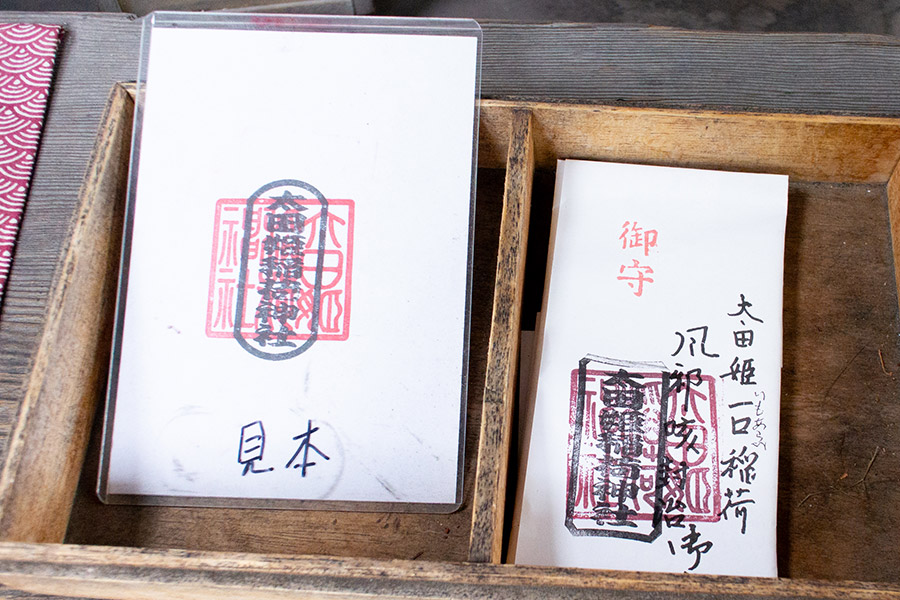 太田姫稲荷神社
見本
御守
太田姫一口稲荷
いもあらい
風邪咳封治御
太田姫稲荷神社